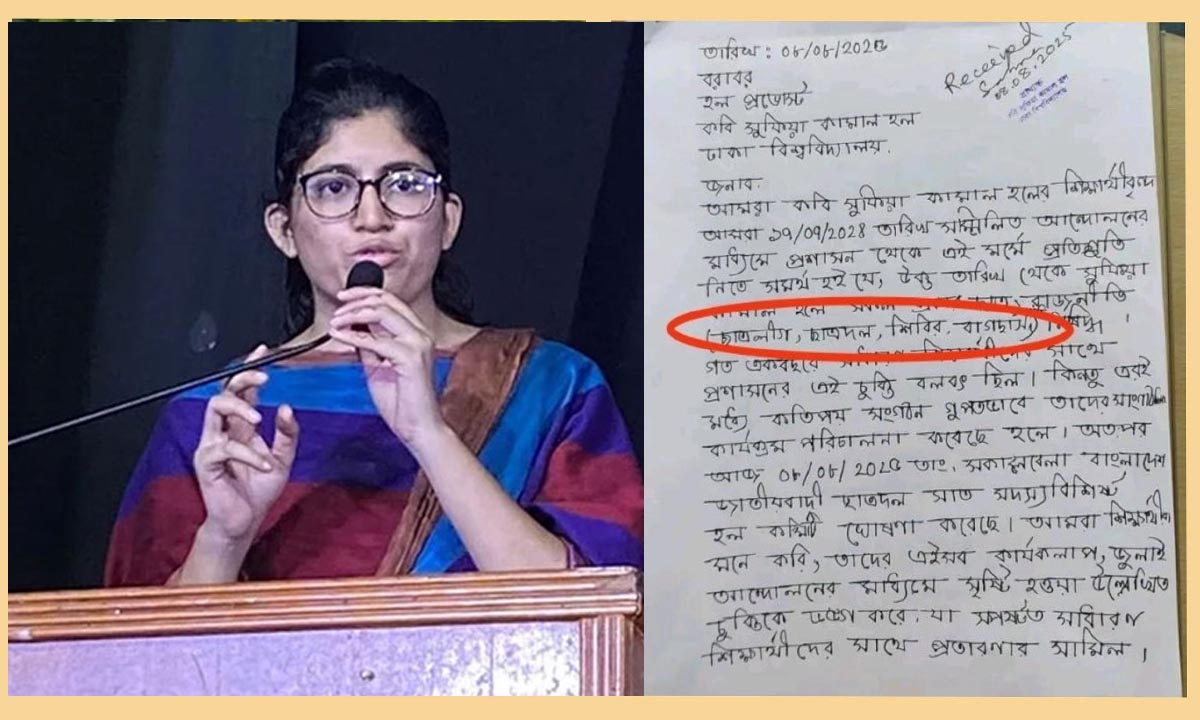 তারিখ: ০৮/০৮/২০২৫
বরাবর
হল প্রভোস্ট
কবি সুফিয়া কামাল হল
ঢাকা বিশ্ববিদ্যালয়.
Received
08.08.2025
জনাব,
আমরা কবি সুফিয়া কামাল হলের শিক্ষার্থীবৃন্দ
আমরা ১৭/০৭/২০২৪ তারিখ সম্মিলিত আন্দোলনের
মাধ্যমে প্রশাসন থেকে এই মর্মে প্রতিশ্রুতি
নিতে সমর্থ হই যে, উক্ত তারিখ থেকে সুফিয়া
কামাল হলে সকল রাজনীতি
(ছাত্রলীগ, ছাত্রদল, শিবির, বাগছাস) নিষিদ্ধ।
গত একবছরে সাধারণ শিক্ষার্থীদের সাথে
প্রশাসনের এই চুক্তি বলবৎ ছিল। কিন্তু এরই
মধ্যে কতিপয় সংগঠন গুপ্তভাবে তাদের সাংগঠনিক
কার্যক্রম পরিচালনা করেছে হলে। অতঃপর
আজ ০৮/০৮/২০২৫ তাং, সকালবেলা বাংলাদেশ
জাতীয়বাদী ছাত্রদল সাত সদস্যবিশিষ্ট
হল কমিটি ঘোষণা করেছে। আমরা শিক্ষার্থীরা
মনে করি, তাদের এইসব কার্যকলাপ, জুলাই
আন্দোলনের মাধ্যমে সৃষ্ট হওয়া উল্লেখিত
চুক্তিকে ভঙ্গ করে, যা স্পষ্টত সাধারণ
শিক্ষার্থীদের সাথে প্রতারণার সামিল।